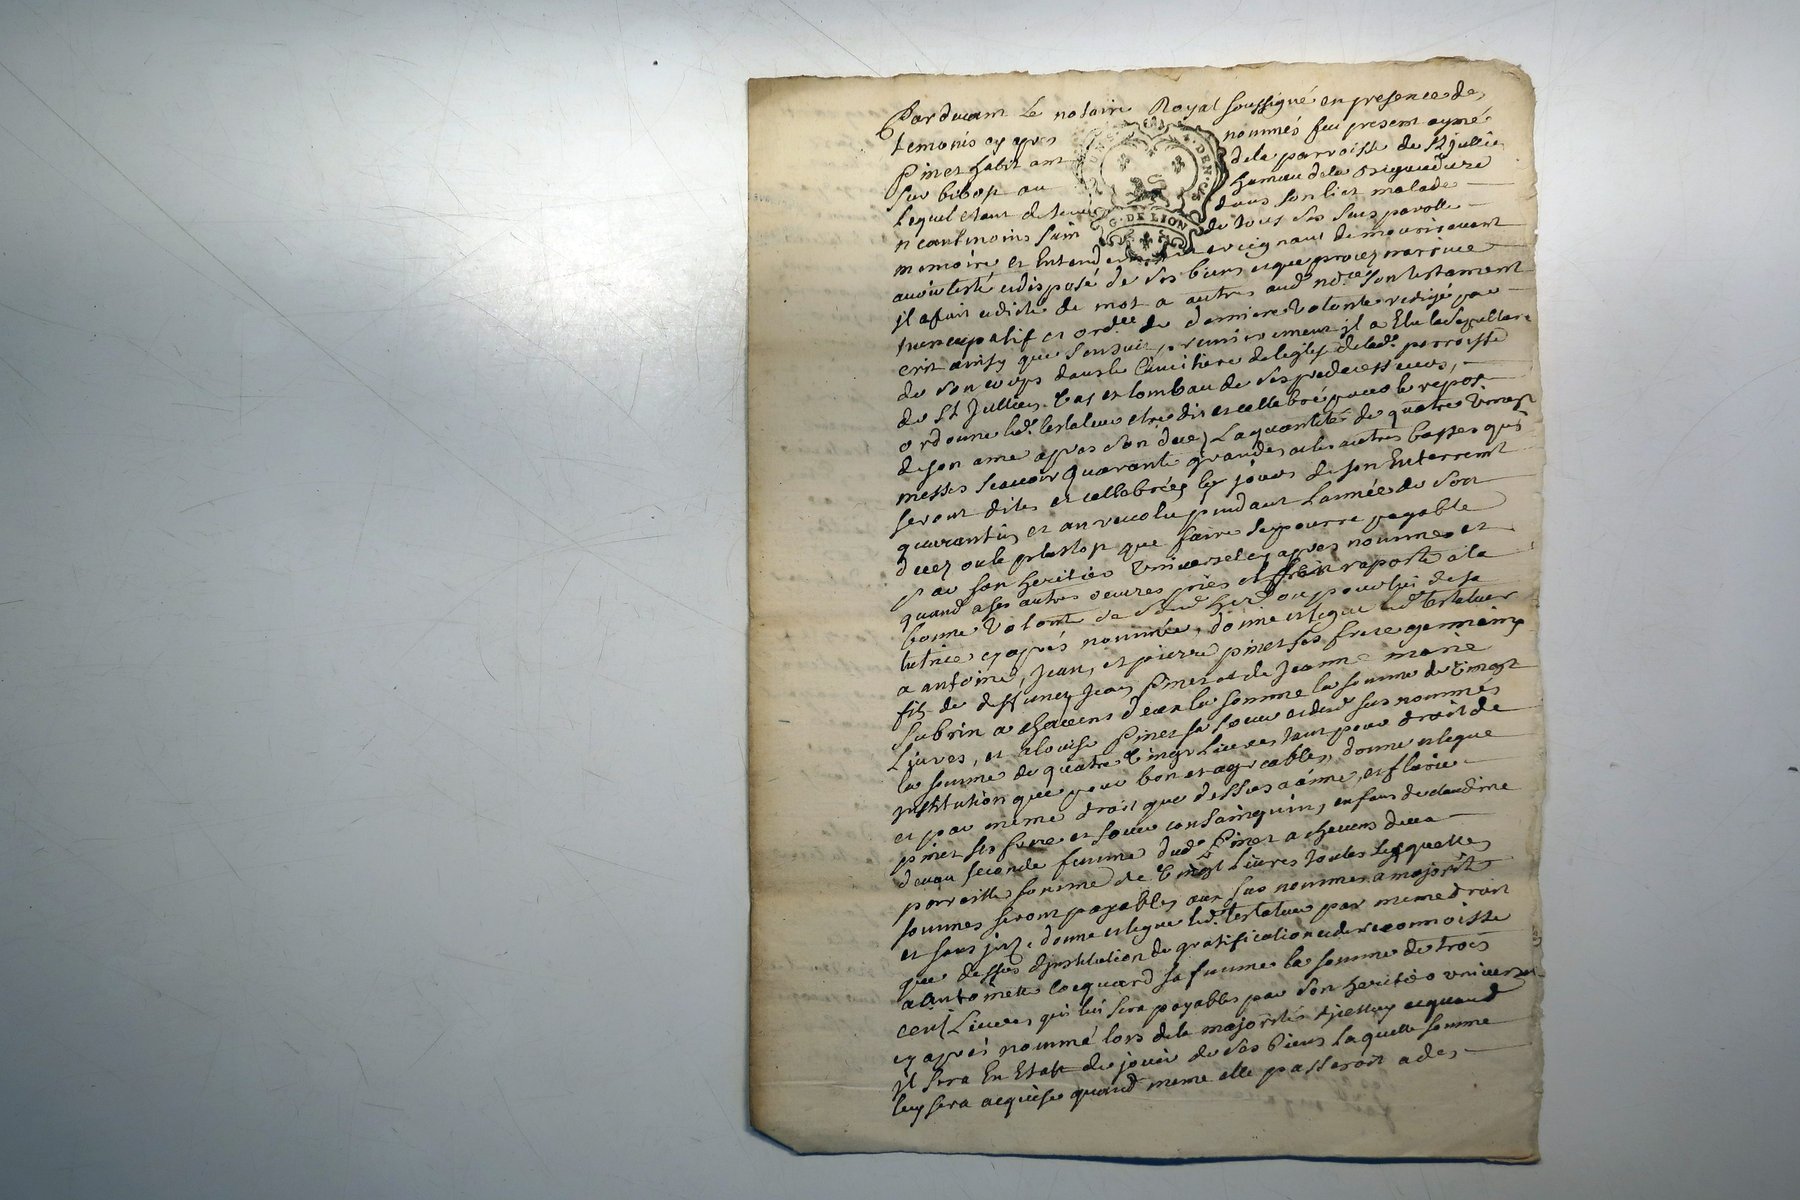 Pardevant Le notaire Royal soussigné en presence des
temoins cy apres nommés fut present aymé
Pinet habitant de la parroisse de St Jullien
sur bibost au hameau de la
Lequel etant detenu dans son lict malade
neantmoins sain de tous ses sens parolle
memoire et Entendement et creignant de mourir avant
avoir testé et disposé de ses biens
il a fait et dicté de mot a autres aud nore son testament
nuncupatif et ordce de derniere volonté redigé par
crit ainsy que sensuit, premierement il a Elu la sepulture
de son corps dans le Cimetiere de leglise de lade parroisse
de St Jullien, tombeau de ses predecesseurs,
ordonne led. testateur etre dit et cellebré pour le repos
de son ame apres son decez La quantité de quatre vingt
messes scavoir quarante grandes et les autres basses qui
seront dites et cellebrées les jours de son Enterrement
quarantin et an revolu pendant lannée de son
decez ou le plustot que faire se pourra payable
par son heritier universel cy apres nommé et
quand a ses autres œuvres pies il sen raporte a la
bonne volonté de sond her ou pour lui de sa
tutrice cy après nommée, donne et legue led testateur
a antoine, Jean, et pierre pinet ses frere germains
fils de deffunct Jean Pinet et de Jeanne marie
Subrin a chacuns deux la somme la somme de vingt
Livres, et a Louise Pinet sa sœur
la somme de quatre vingt Livres tant pour droit de
institution que pour bon et agreables, donne et legue
et par meme droit que dessus a aimé, et
pinet ses frere et sœur consainguin, enfans de claudine
devau seconde femme dud. Pinet a chacuns deux
pareille somme de vingt Livres toutes lesquelles
sommes seront payables aux sus nommés a majorité
et sans int. donne et legue led. testateur par meme droit
que dessus dinstitution de gratification et de reconnoisse
a antoinette locquard sa femme la somme de trois
cent Livres qui lui sera payables par son heritier universel
cy après nommé lors de la majorité dicelluy et quand
il sera En Etat de jouir de ses biens laquelle somme
luy sera acquise quand meme elle passeroit a des
G. DE LION